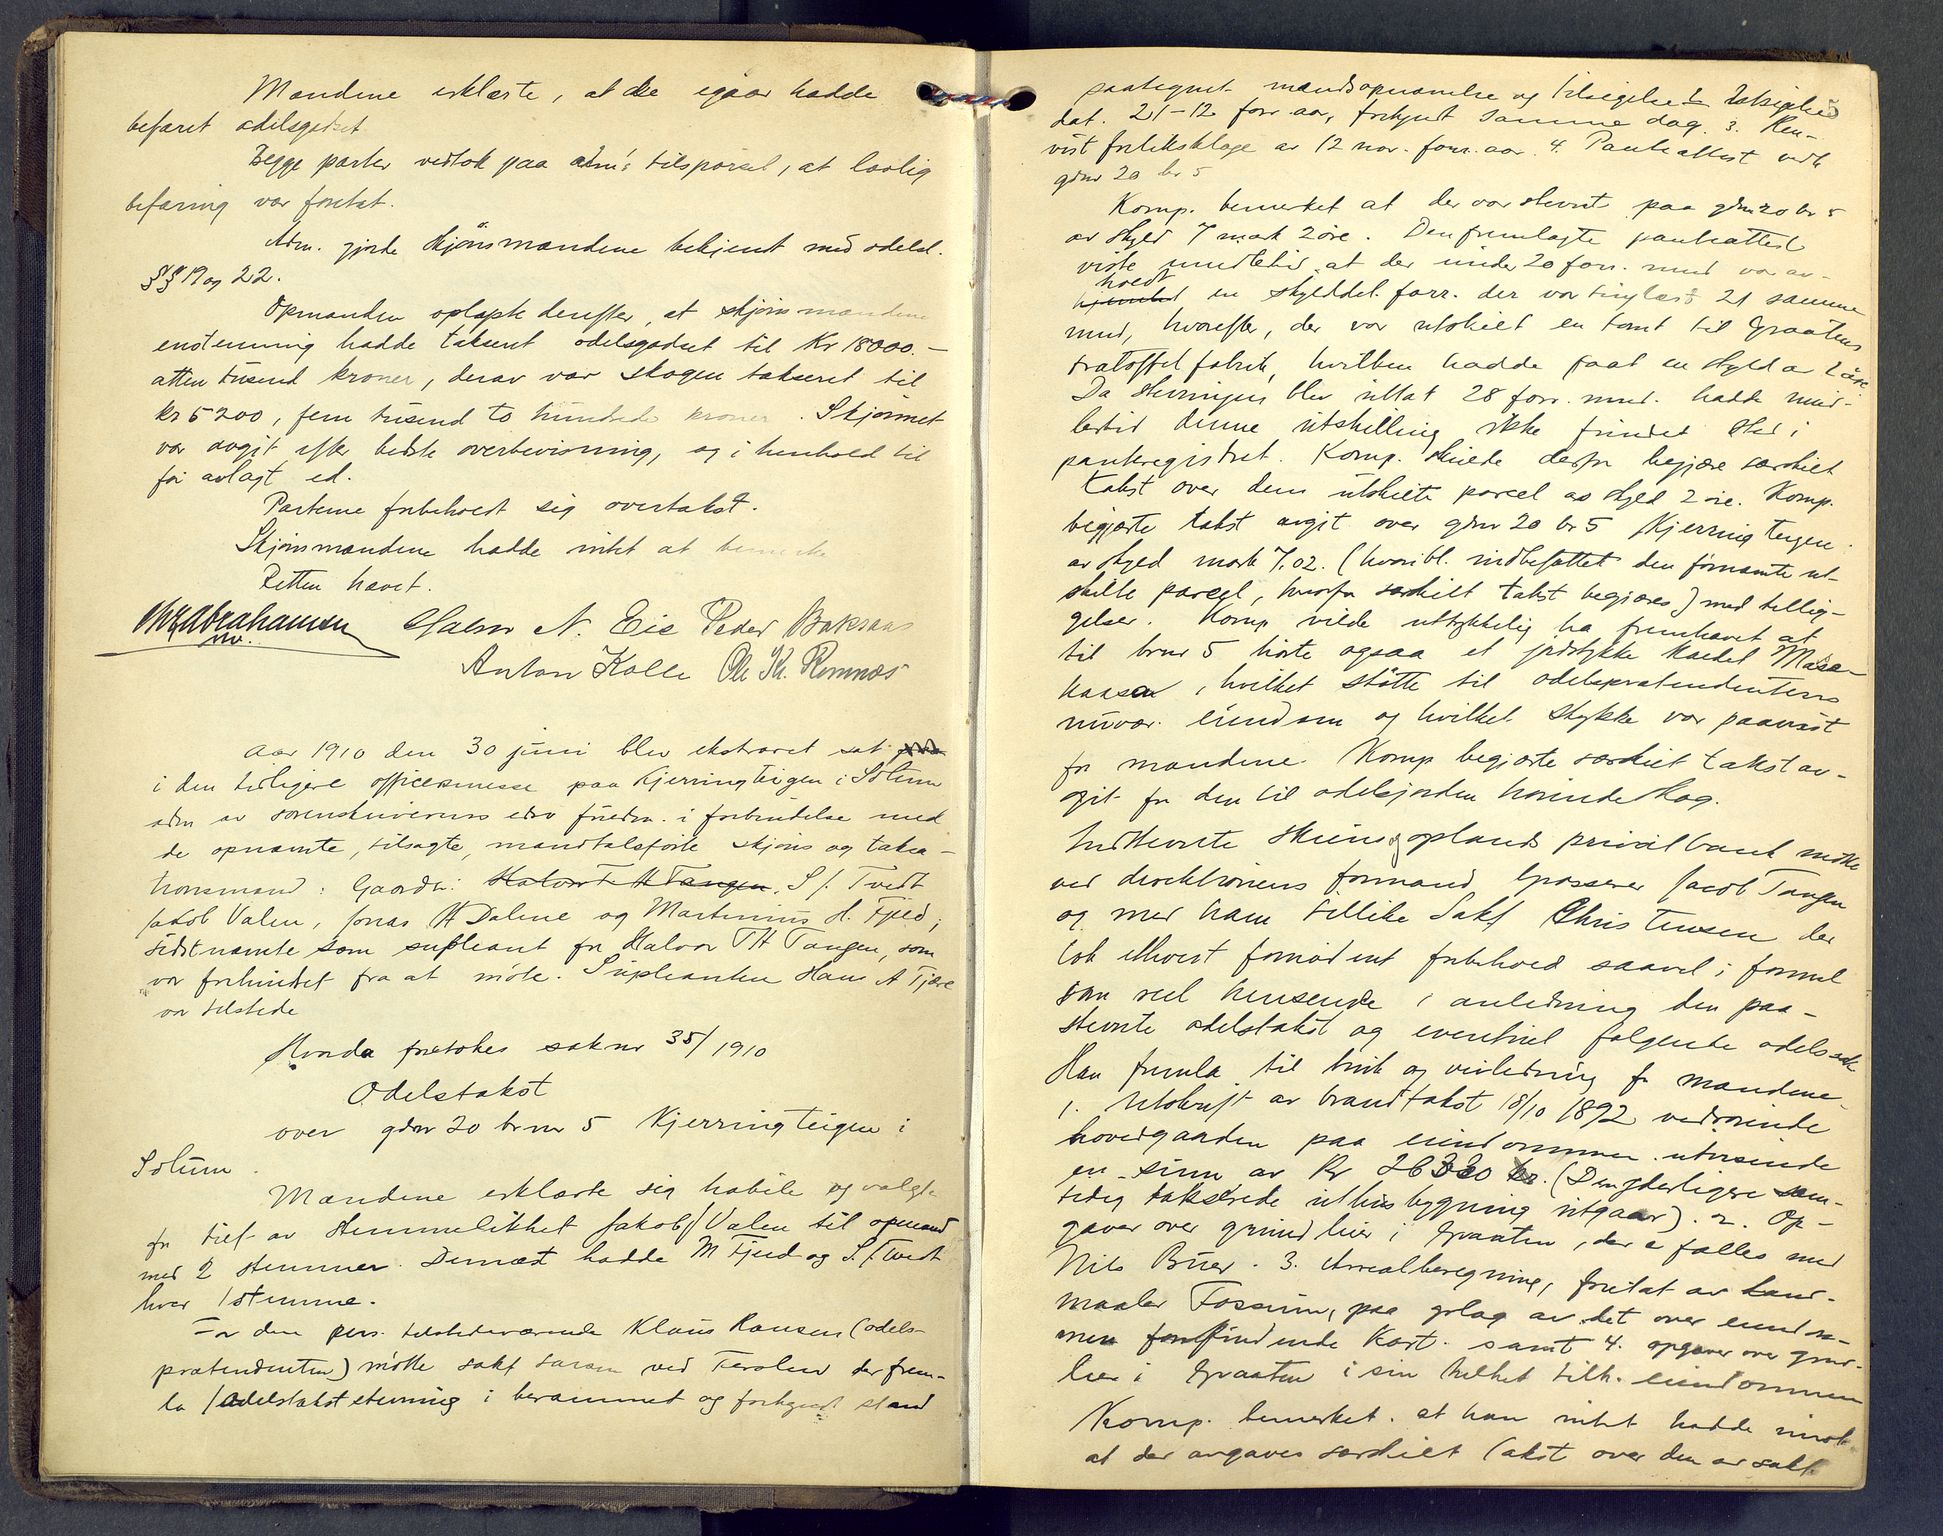 Mændene erklærte, at de igaar hadde
befaret odelsgodset
Begge parter vedtok paa adm's tilspørsel, at lovlig
befaring var foretat.
Adm. gjorde skjønsmændene bekjent med odelsl.
§§ 19 og 22.
Opmanden oplæste derefter, at skjønsmændene
enstemmig hadde takseret odelsgodset til Kr 18000.-
atten tusend kroner, derav var skogen takseret til
kr 5200, fem tusend to hundrede kroner. Skjønnet
var avgit efter bedste overbevisning, og i henhold til
før avlagt ed.
Parterne forbeholdt sig overtakst.
Skjønsmændene hadde intet at bemerke
Retten hævet.
Chr Abrahamsen Halvor N. Eie Peder Baksaas
Anton Kolle Ole K. Romnæs
Aar 1910 den 30 juni blev ekstraret sat
i den tidligere officersmesse paa Kjerringteigen i Solum
adm av sorenskriverens edsv fuldm. i forbindelse med
de opnævnte, tilsagte, mandtalsførte skjøns og taksa-
tionsmænd: Gaardbr: Halvor T H Tangen, S J. Tvedt
Jakob Valen, Jonas H Dalene og Martinius H. Fjeld;
sidstnævnte som supleant for Halvor TH Tangen, som
var forhindret fra at møte. Supleanten Hans A Fjære
var tilstede
Hvorda foretokes sak nr 35/1910
Odelstakst
over gdnr 20 br nr 5 Kjerringteigen i
Solum.
Mændene erklærte sig habile og valgte
for tief av hemmelikhet Jakob J Valen til opmand
med 2 stemmer. Dernæst hadde M Fjeld og S. J. Tvedt
hver 1 stemme.
For den pers. tilstedeværende Klaus Hansen (odels-
prætendenten) møtte sakf ved der frem-
la 1 odelstakststevning i berammet og forkyndt stand
paategnet mandsopnævnelse og tilsigelse 2
dat. 21-12 forr aar, forkyndt samme dag. 3. Hen-
vist forliksklage av 12 nov. forr. aar 4. Panteattest vedk
gdnr 20 br 5
Komp. bemerket at der var stevnt paa gdnr 20 br 5
av skyld 7 mark 2 øre. Den fremlagte panteattest
viste imidlertid at der under 20 forr. mnd var av-
holdt
hjemlet en skylddel. forr. der var tinglæst 21 samme
mnd, hvorefter, der var utskilt en tomt til Graatens
trætøffelfabrik, hvilken hadde faat en skyld av 2 øre
Da stevningen blev uttat 28 forr. mnd. hadde imid-
lertid denne utskilling ikke fundet sted i
panteregistret. Komp. skulde derfor begjære særskilt
takst over den utskilte parcel av skyld 2 øre. Komp.
begjærte takst avgit over gdnr 20 br 5 Kjerringteigen
av skyld mark 7.02. (hvoribl. indbefattet den førnævnte ut-
skilte parcel, hvorfor særskilt takst begjæres) med tillig-
gelser. Komp vilde uttrykkelig ha fremhævet at
til brnr 5 hørte ogsaa et jordstykke kaldet Mæsa-
kaasa, hvilket støtte til odelsprætendentens
nuvær. eiendom og hvilket stykke var paavist
for mændene. Komp begjærte særskilt takst av-
git for den til odelsjorden hørende skog.
Indstevnte Skiens oplands privatbank møtte
ved direktionens formand Jacob Tangen
og med ham tillike Sakf Christensen der
tok ethvert fornødent forbehold saavel i formel
som reel henseende i anledning den paa-
stevnte odelstakst og eventuel følgende odelssak
Han fremla til bruk og veiledning for mændene
1. Utskrift av brandtakst 18/10 1892 vedrørende
hovedgaarden paa eiendommen utvisende
en sum av Kr 26320 kr. (Den yderligere sam-
tidig takserede uthusbygning utgaar). 2. Op-
gaver over grundleier i Graaten, der e fælles med
Nils Buer. 3. Arealberegning, foretat av land-
maaler Fossum, paa grlag av det over eiendom-
men forefindende kart. samt 4. opgaver over grund-
leier i Graaten i sin helhet tilh. eiendommen
Komp. bemerket. at han intet hadde imot
at der avgaves særskilt takst over den av sakf.